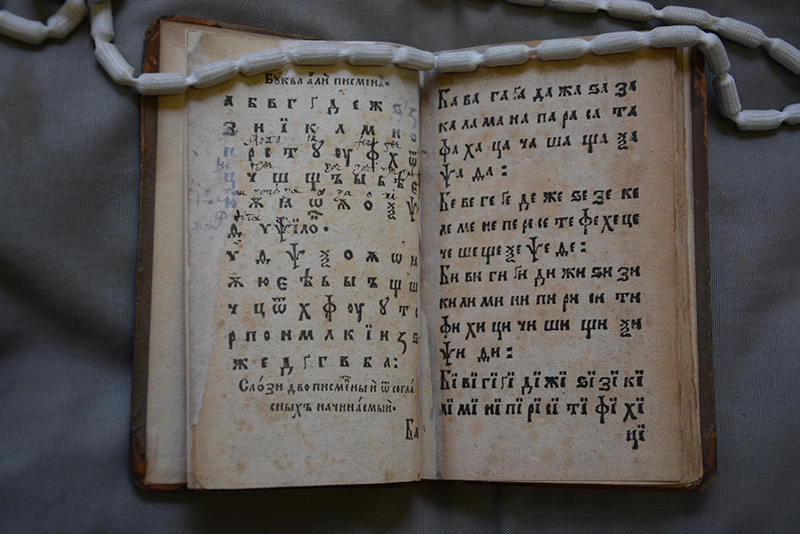 Бꙋ́ква а҆лѝ писмена̀.
а б в г ґ д е ж ѕ
з и ї к л м н
п р с т ꙋ оу ф х ѿ
ц ч ш щ ъ ы ь ѣ є
ю ѧ ѡ ѯ ѱ
ѱ ѯ о ѡ
ю є ѣ ь ы ъ щ ш
ч ц ѿ х ф оу ꙋ т с
р п о н м л к ї и з ѕ
ж е д ґ г в б а:
Сло́зи дво писме́ны й ѿ согла
сныхъ начина́емый.
Ба
Ба ва га ґа да жа ѕа за
ка ла ма на па ра са та
фа ха ца ча ша ща ѯа
ѱа ѳа:
Бе ве ге ґе де же ѕе зе ке
ле ме не пе ре се те фе хе це
че ше ще ѯе ѱе ѳе:
Би ви ги ґи ди жи ѕи зи
ки ли ми ни пи ри си ти
фи хи ци чи ши щи ѯи
ѱи ѳи:
Бї вї гї ґї дї жї ѕї зї кї
лї мї нї пї рї сї тї фї хї
цї